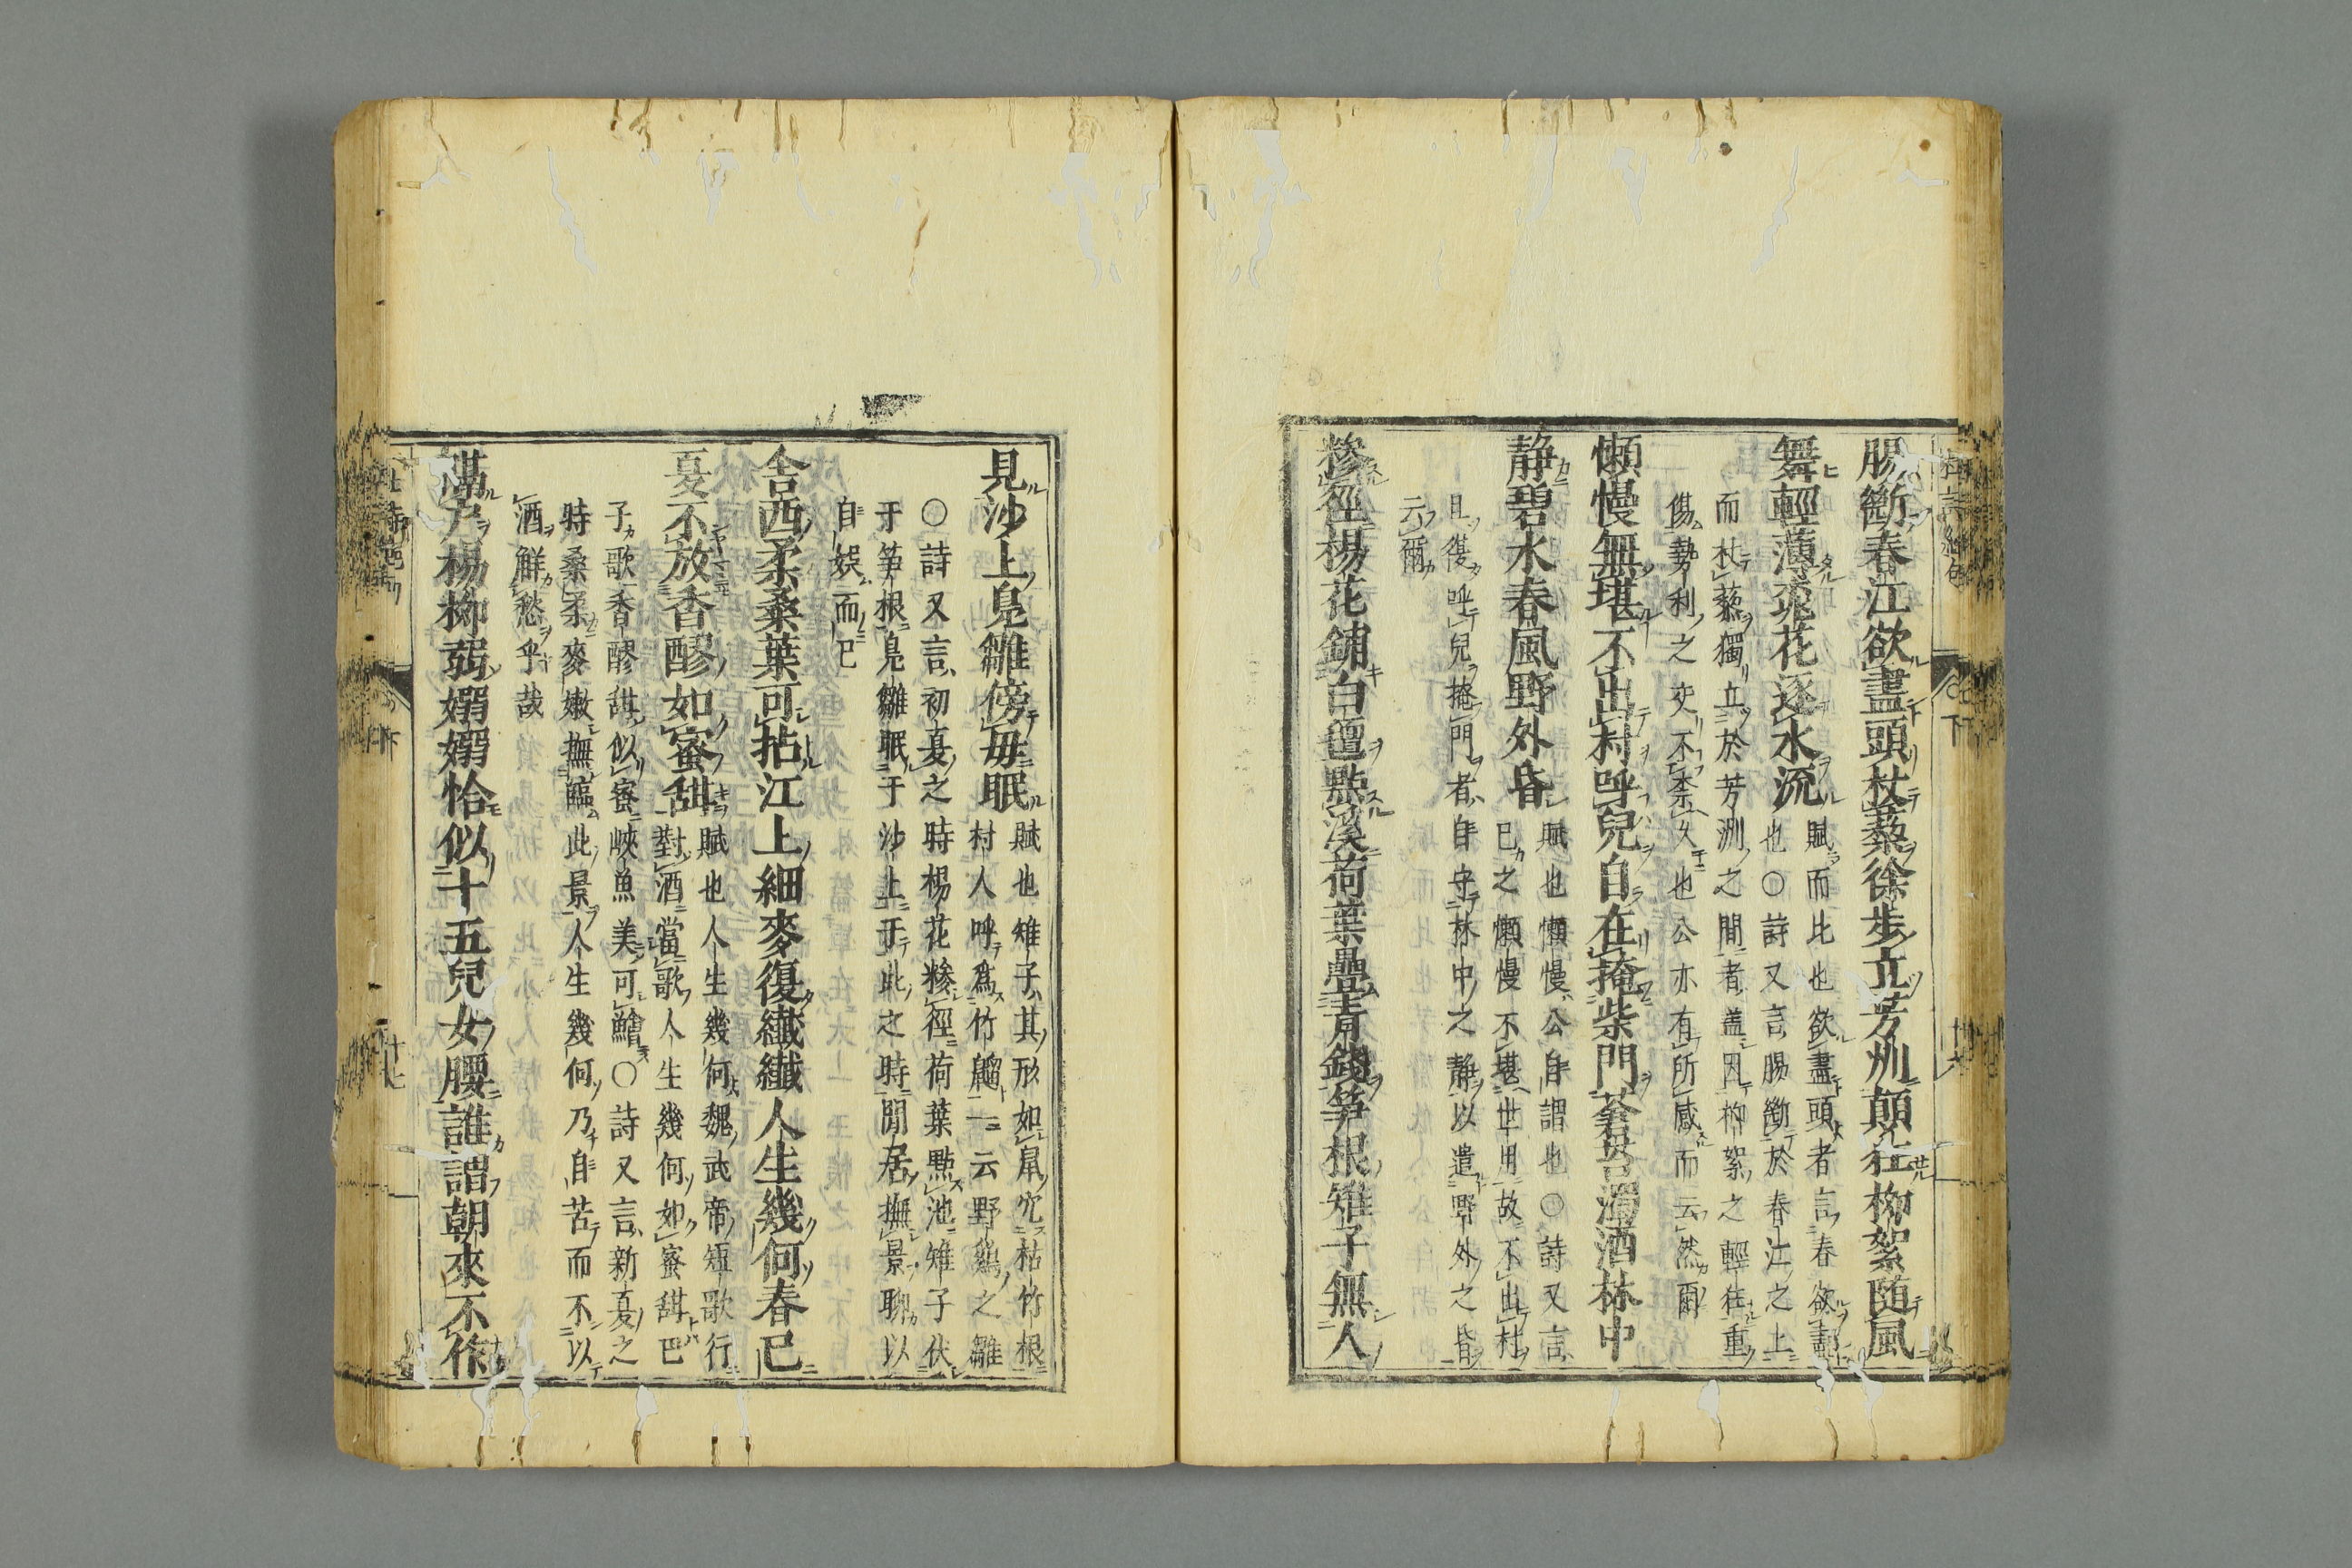 腸斷春江欲盡頭杖藜徐步立芳洲顛狂柳絮随風
舞輕薄桃花逐水流
賦而比也欲盡頭者言春欲盡
也○詩又言腸斷於春江之上
而杖藜獨立於芳洲之間者盖因柳絮之輕狂重
傷勢利之交不柰久也公亦有所感而云然爾
懶慢無堪不出村呼兒自在掩柴門蒼苔濁酒林中
静碧水春風野外昏
賦也懶慢公自謂也○詩又言
已之懶慢不堪世用故不出村
且復呼兒掩門者自守林中之静以遣野外之昏
云爾
糝徑楊花鋪白氊點溪荷葉疊青錢笋根雉子無人
見沙上鳬雛傍毋眠
賦也雉子其形如鼠穴枯竹根
村人呼爲竹䶉一云野鷄之雛
○詩又言初夏之時楊花糝徑荷葉點池雉子伏
于笋根鳬雛眠于沙上于此之時閒居撫景聊以
自娱而已
舍西柔桑葉可拈江上細麥復纖纖人生幾何春已
夏不放香醪如蜜甜
賦也人生幾何魏武帝短歌行
對酒當歌人生幾何如蜜甜巴
子歌香醪甜似蜜峽魚美可鱠○詩又言新夏之
時桑柔麥嫩撫臨此景人生幾何乃自苦而不以
酒鮮愁乎哉
隔户楊柳弱嫋嫋恰似十五兒女腰誰謂朝來不作